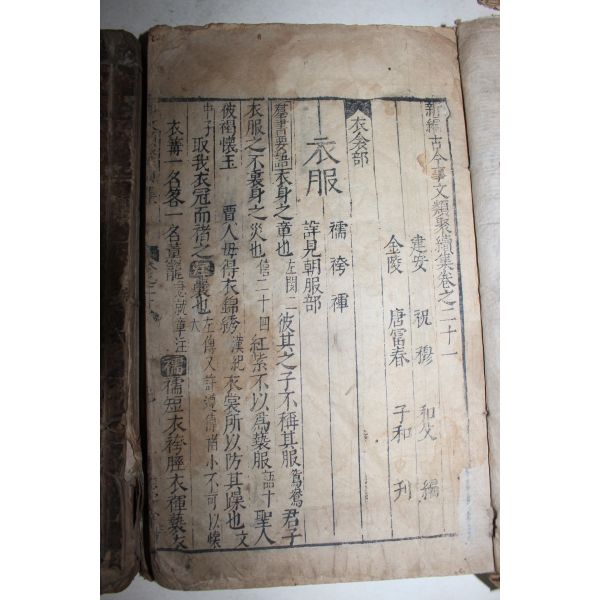 新編古今事文類聚續集卷之二十一
建安 祝穆 和父 編
金陵 唐富春 子和 刊
衣衾部
衣服 襦袴褌 詳見朝服部
群書要語衣身之章也左閔二彼其之子不稱其服鴛鴦君子
衣服之不衷身之災也僖二十四紅紫不以爲褻服語十聖人
彼褐懷玉 賈人毋得衣錦綉漢紀衣裳所以防其躁也文
中子取我衣冠而褚之
衣 一名 一名 急就章注 襦襦短衣袴脛衣褌褻衣